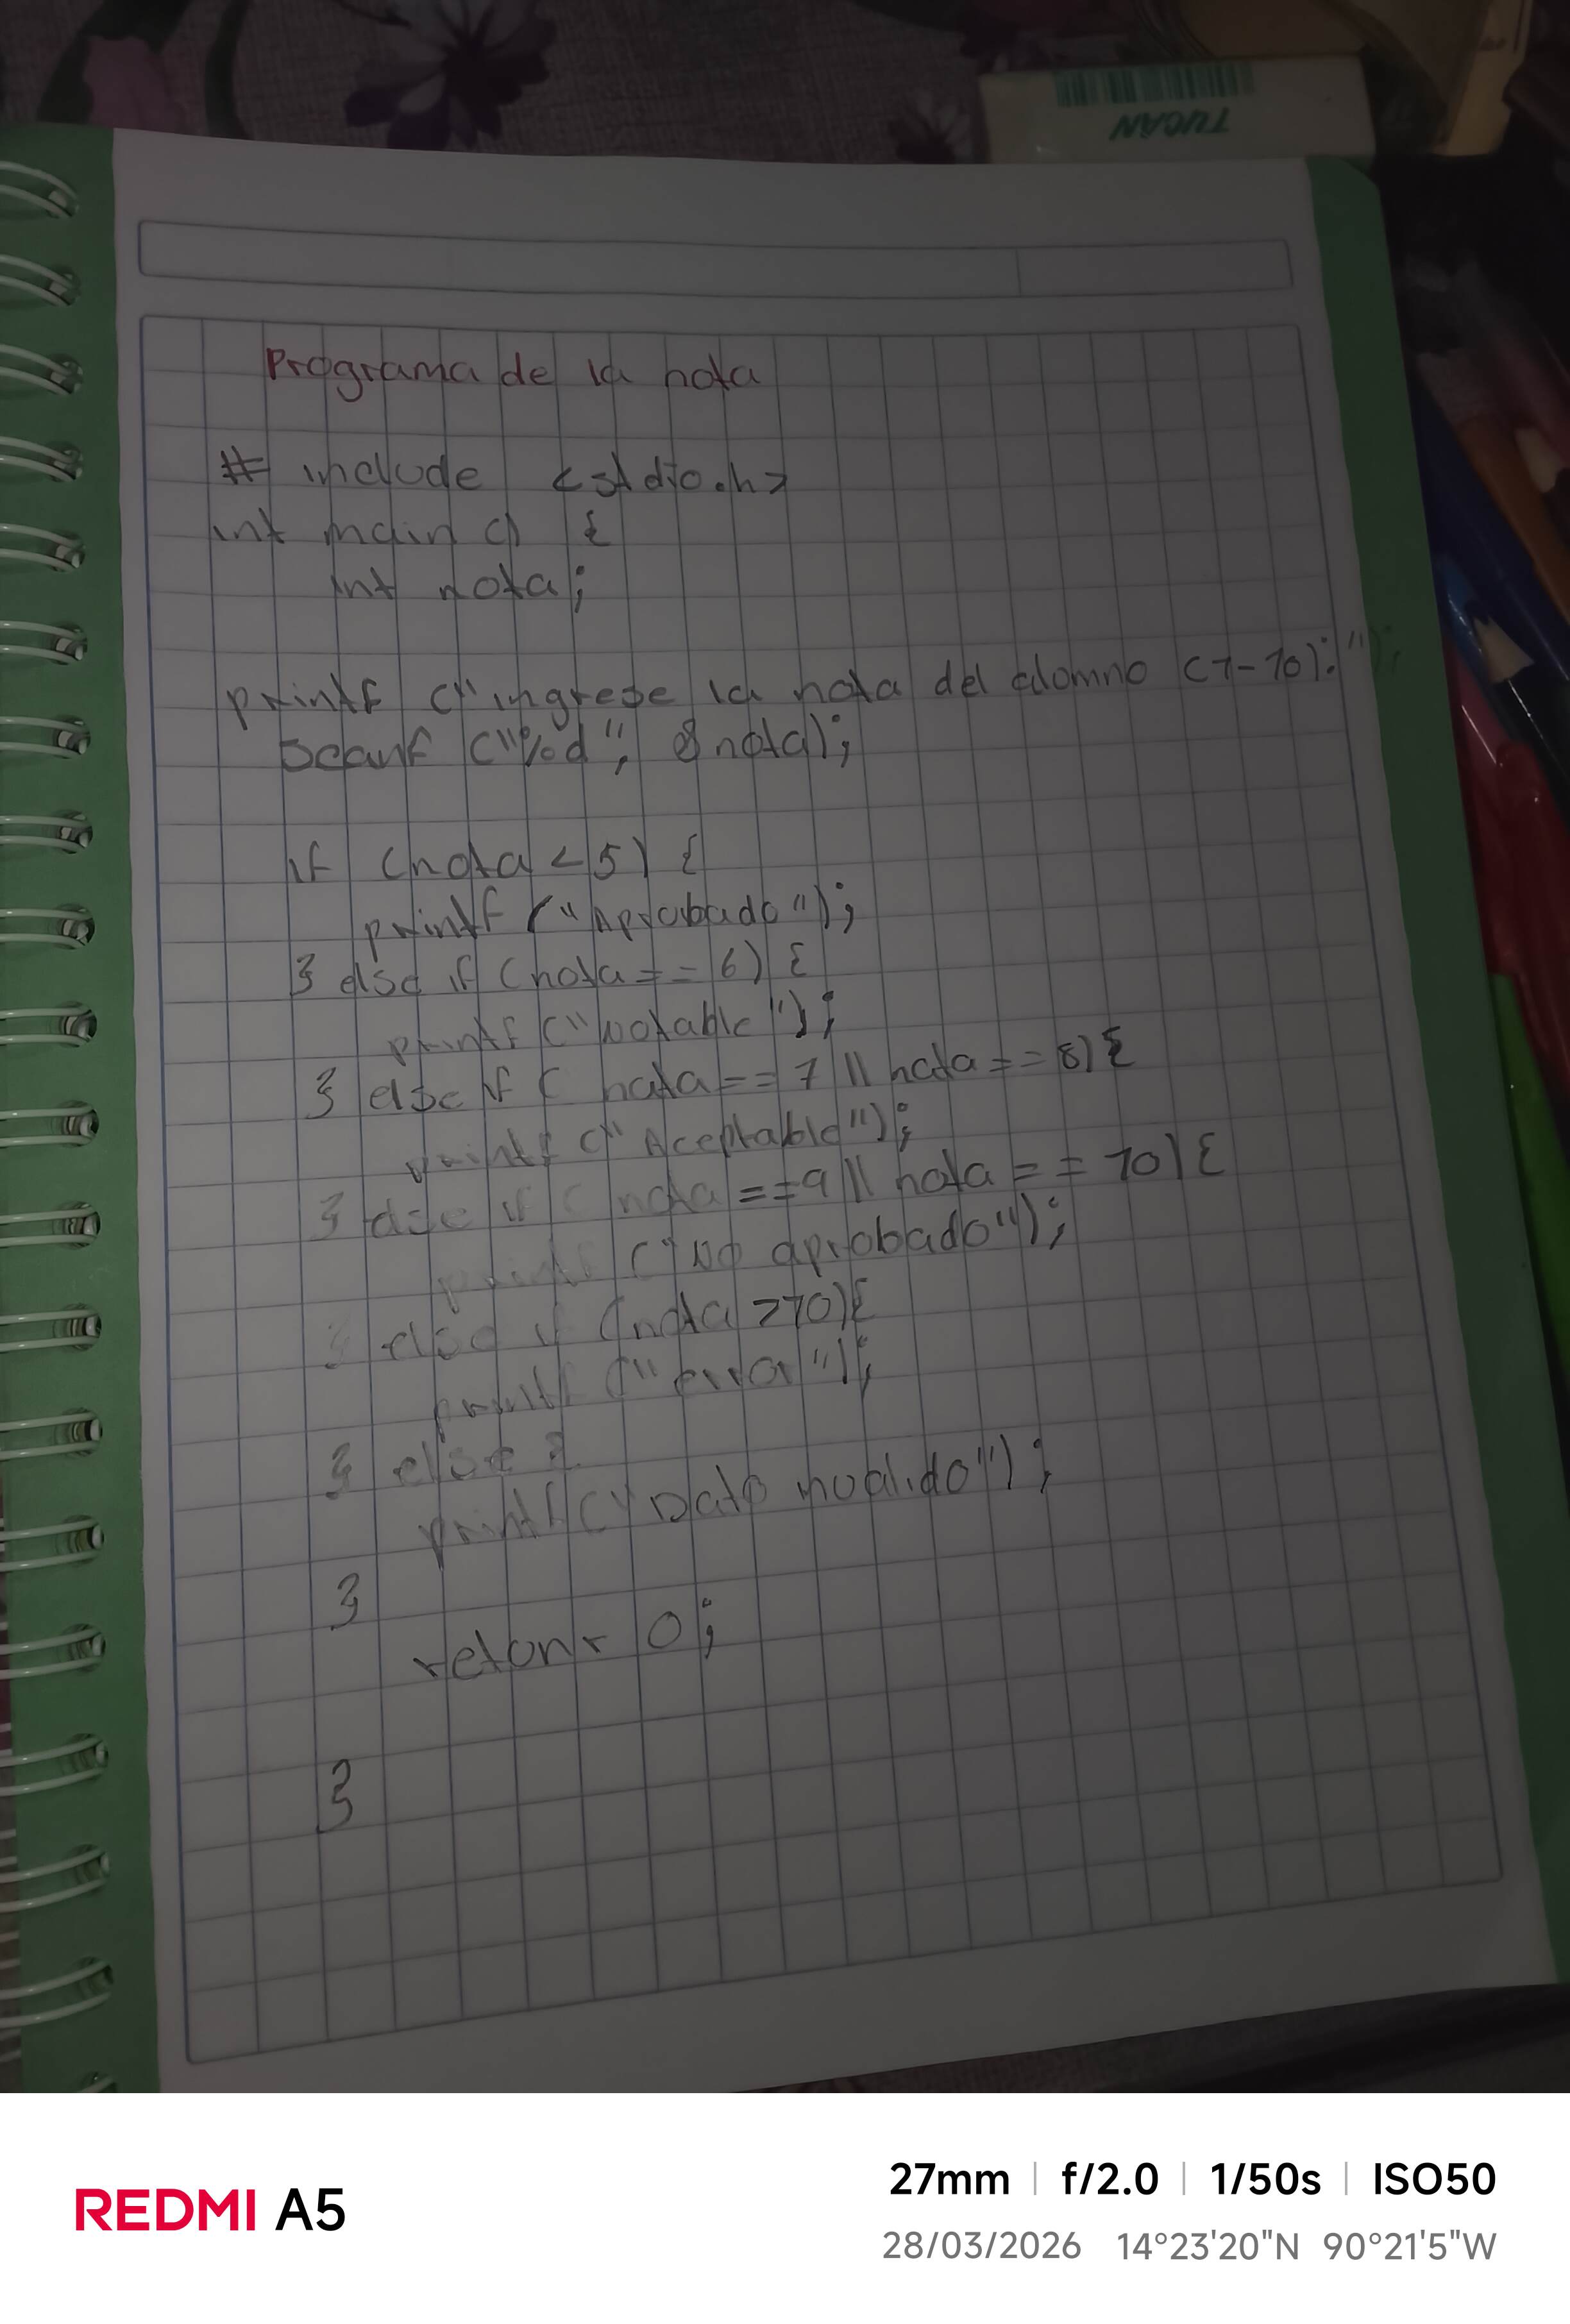 TUCAN
Programa de la nota
# include <stdio.h>
int main () {
int nota;
printf ("ingrese la nota del alomno (1-10):");
scanf ("%d", &nota);
if (nota < 5) {
printf ("Aprobado");
} else if (nota == 6) {
printf ("Notable");
} else if ( nota == 7 || nota == 8) {
printf (" Aceptable");
} else if ( nota == 9 || nota == 10) {
printf ("No aprobado");
} else if (nota >10){
printf ("error");
} else {
printf (" Dato invalido");
}
retonr 0;
}
REDMI A5
27mm | f/2.0 | 1/50s | ISO50
28/03/2026 14°23'20"N 90°21'5"W